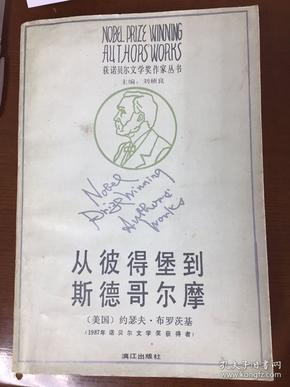 NOBEL PRIZE WINNING
AUTHORS WORKS
获诺贝尔文学奖作家丛书
主编：刘硕良
Nobel
Prize Winning
Authors'
Works
从彼得堡到
斯德哥尔摩
〔美国〕约瑟夫·布罗茨基
(1987年诺贝尔文学奖获得者)
漓江出版社
孔夫子旧书网